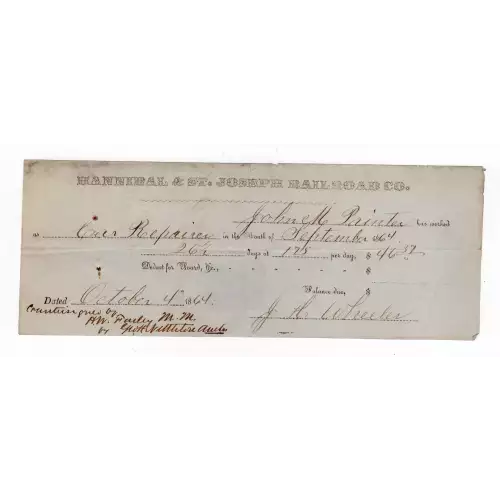 HANNIBAL & ST. JOSEPH RAILROAD CO.
John M Painter has worked
as Car Repairer in the Month of September 1864
26½ days at 175 per day, $ 46 37
Deduct for Board, &c., - - - - - $
Balance due, $
Dated October 4" 1864. J H Wheeler
Countersigned by
H.W. Farley M. M.
by Geo